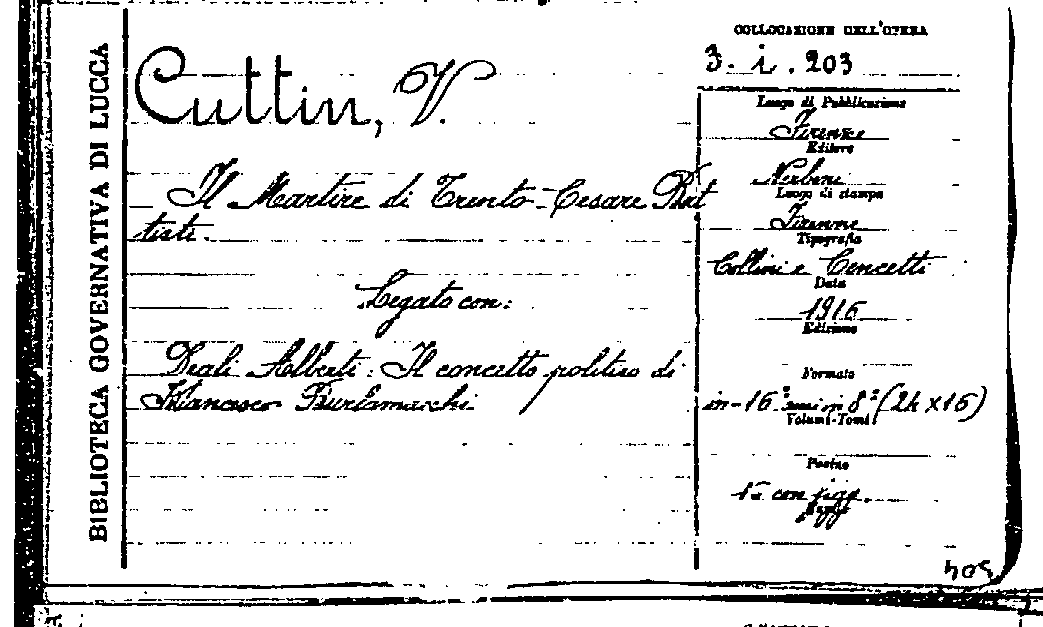 BIBLIOTECA GOVERNATIVA DI LUCCA
COLLOCAZIONE DELL'OPERA
3. i. 203
Cuttin, V.
Il Martire di Trento - Cesare Bat
tisti.
Legato con:
Degli Alberti: Il concetto politico di
Francesco Burlamacchi
Luogo di Pubblicazione
Firenze
Editore
Nerbini
Luogo di stampa
Firenze
Tipografia
Collini e Cencetti
Data
1916
Edizione
Formato
in-16° 8° (24 x 16)
Volumi-Tomi
Pagine
con figg.